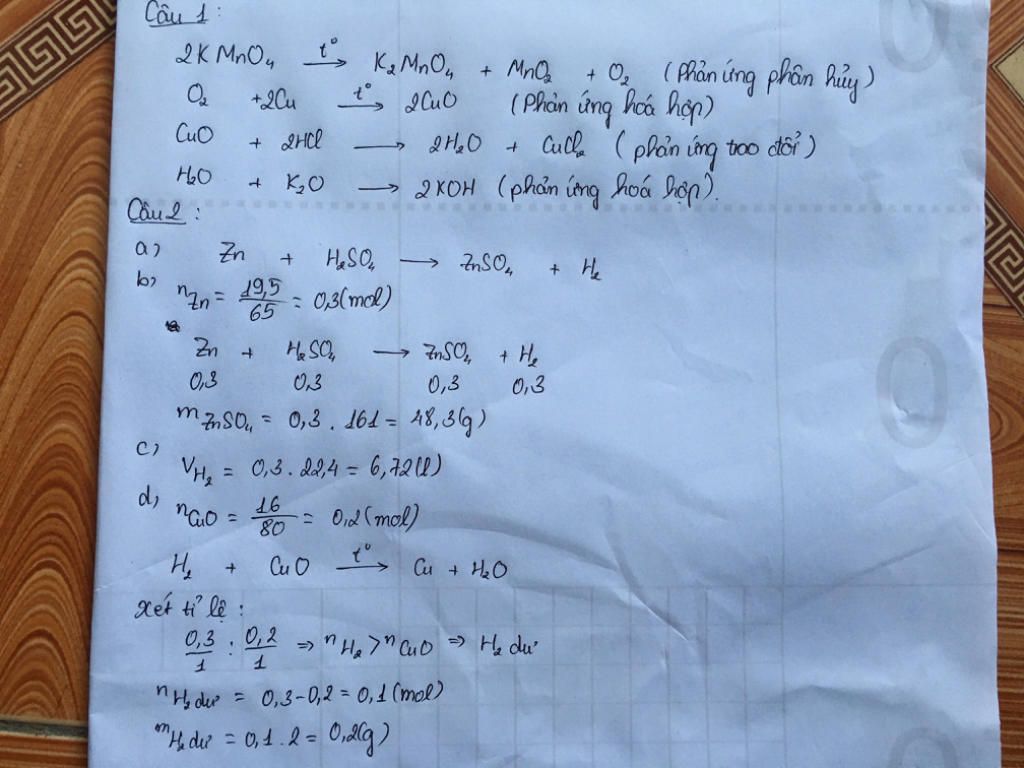 Câu 1:
2KMnO₄ t°→ K₂MnO₄ + MnO₂ + O₂ (Phản ứng phân hủy)
O₂ +2Cu t°→ 2CuO (Phản ứng hoá hợp)
CuO + 2HCl → 2H₂O + CuCl₂ (phản ứng trao đổi)
H₂O + K₂O → 2KOH (phản ứng hoá hợp).
Câu 2:
a) Zn + H₂SO₄ → ZnSO₄ + H₂
b) nZn = 19,5/65 = 0,3(mol)
Zn + H₂SO₄ → ZnSO₄ + H₂
0,3 0,3 0,3 0,3
mZnSO₄ = 0,3 . 161 = 48,3(g)
c) VH₂ = 0,3 . 22,4 = 6,72(l)
d) nCuO = 16/80 = 0,2(mol)
H₂ + CuO t°→ Cu + H₂O
Xét tỉ lệ:
0,3/1 : 0,2/1 ⇒ nH₂ > nCuO ⇒ H₂ dư
nH₂ dư = 0,3-0,2 = 0,1(mol)
mH₂ dư = 0,1 . 2 = 0,2(g)